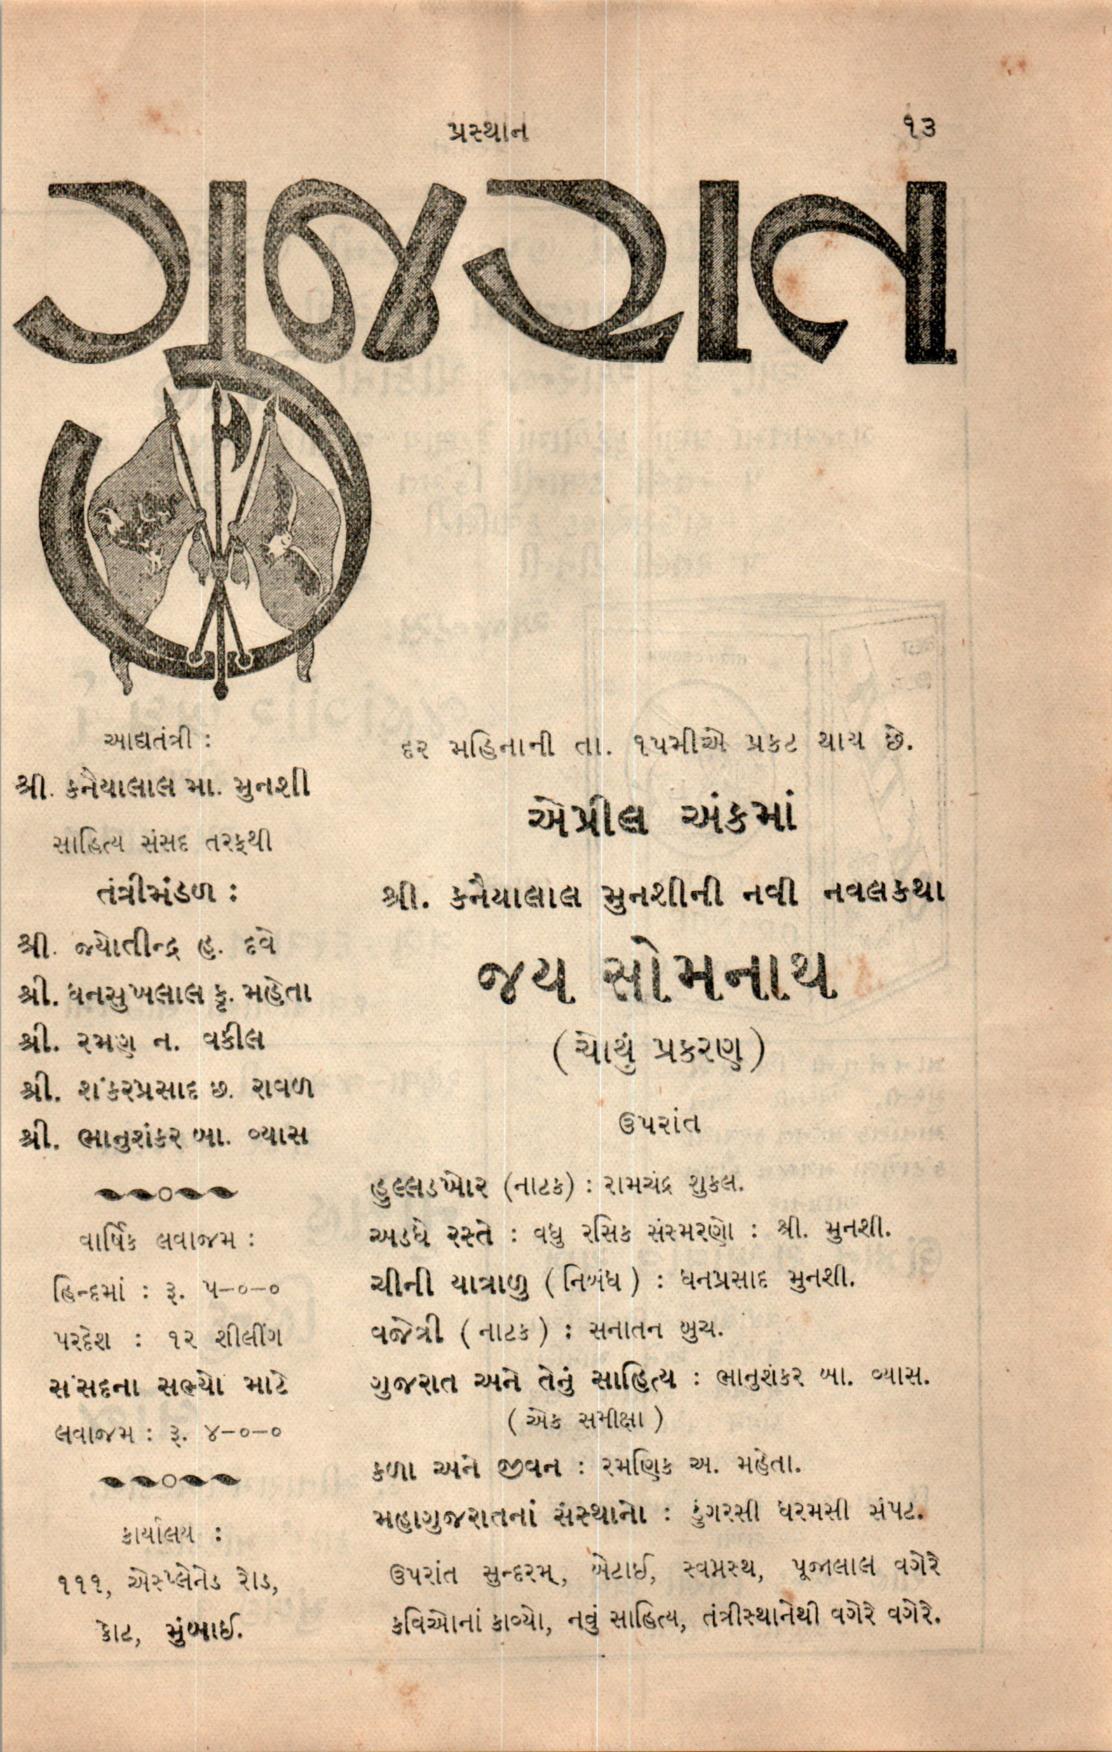 પ્રસ્થાન
૧૩
ગુજરાત
આદ્યતંત્રી :
શ્રી. કનૈયાલાલ મા. મુનશી
સાહિત્ય સંસદ તરફથી
તંત્રીમંડળ :
શ્રી. જ્યોતીન્દ્ર હ. દવે
શ્રી. ધનસુખલાલ કૃ. મહેતા
શ્રી. રમણ ન. વકીલ
શ્રી. શંકરપ્રસાદ છ. રાવળ
શ્રી. ભાનુશંકર બા. વ્યાસ
વાર્ષિક લવાજમ :
હિન્દમાં : રૂ. ૫-૦-૦
પરદેશ : ૧૨ શીલીંગ
સંસદના સભ્યો માટે
લવાજમ : રૂ. ૪-૦-૦
કાર્યાલય :
૧૧૧, એસ્પ્લેનેડ રોડ,
કોટ, મુંબાઈ.
દર મહિનાની તા. ૧૫મીએ પ્રકટ થાય છે.
એપ્રીલ અંકમાં
શ્રી. કનૈયાલાલ મુનશીની નવી નવલકથા
જય સોમનાથ
(ચોથું પ્રકરણ)
ઉપરાંત
હુલ્લડખોર (નાટક) : રામચંદ્ર શુકલ.
અડધે રસ્તે : વધુ રસિક સંસ્મરણો : શ્રી. મુનશી.
ચીની યાત્રાળુ (નિબંધ) : ધનપ્રસાદ મુનશી.
વજેત્રી (નાટક) : સનાતન બુચ.
ગુજરાત અને તેનું સાહિત્ય : ભાનુશંકર બા. વ્યાસ.
(એક સમીક્ષા)
કળા અને જીવન : રમણિક અ. મહેતા.
મહાગુજરાતનાં સંસ્થાનો : ડુંગરસી ધરમસી સંપટ.
ઉપરાંત સુન્દરમ્, બેટાઈ, સ્વપ્નસ્થ, પૂજાલાલ વગેરે
કવિઓનાં કાવ્યો, નવું સાહિત્ય, તંત્રીસ્થાનેથી વગેરે વગેરે.